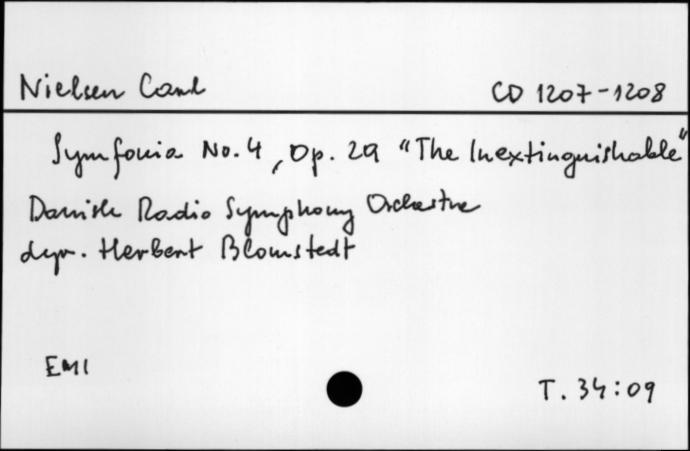 Nielsen Carl CD 1207-1208
Symfonia No. 4, Op. 29 "The Inextinguishable"
Danish Radio Symphony Orchestra
dyr. Herbert Blomstedt
EMI
T. 34:09